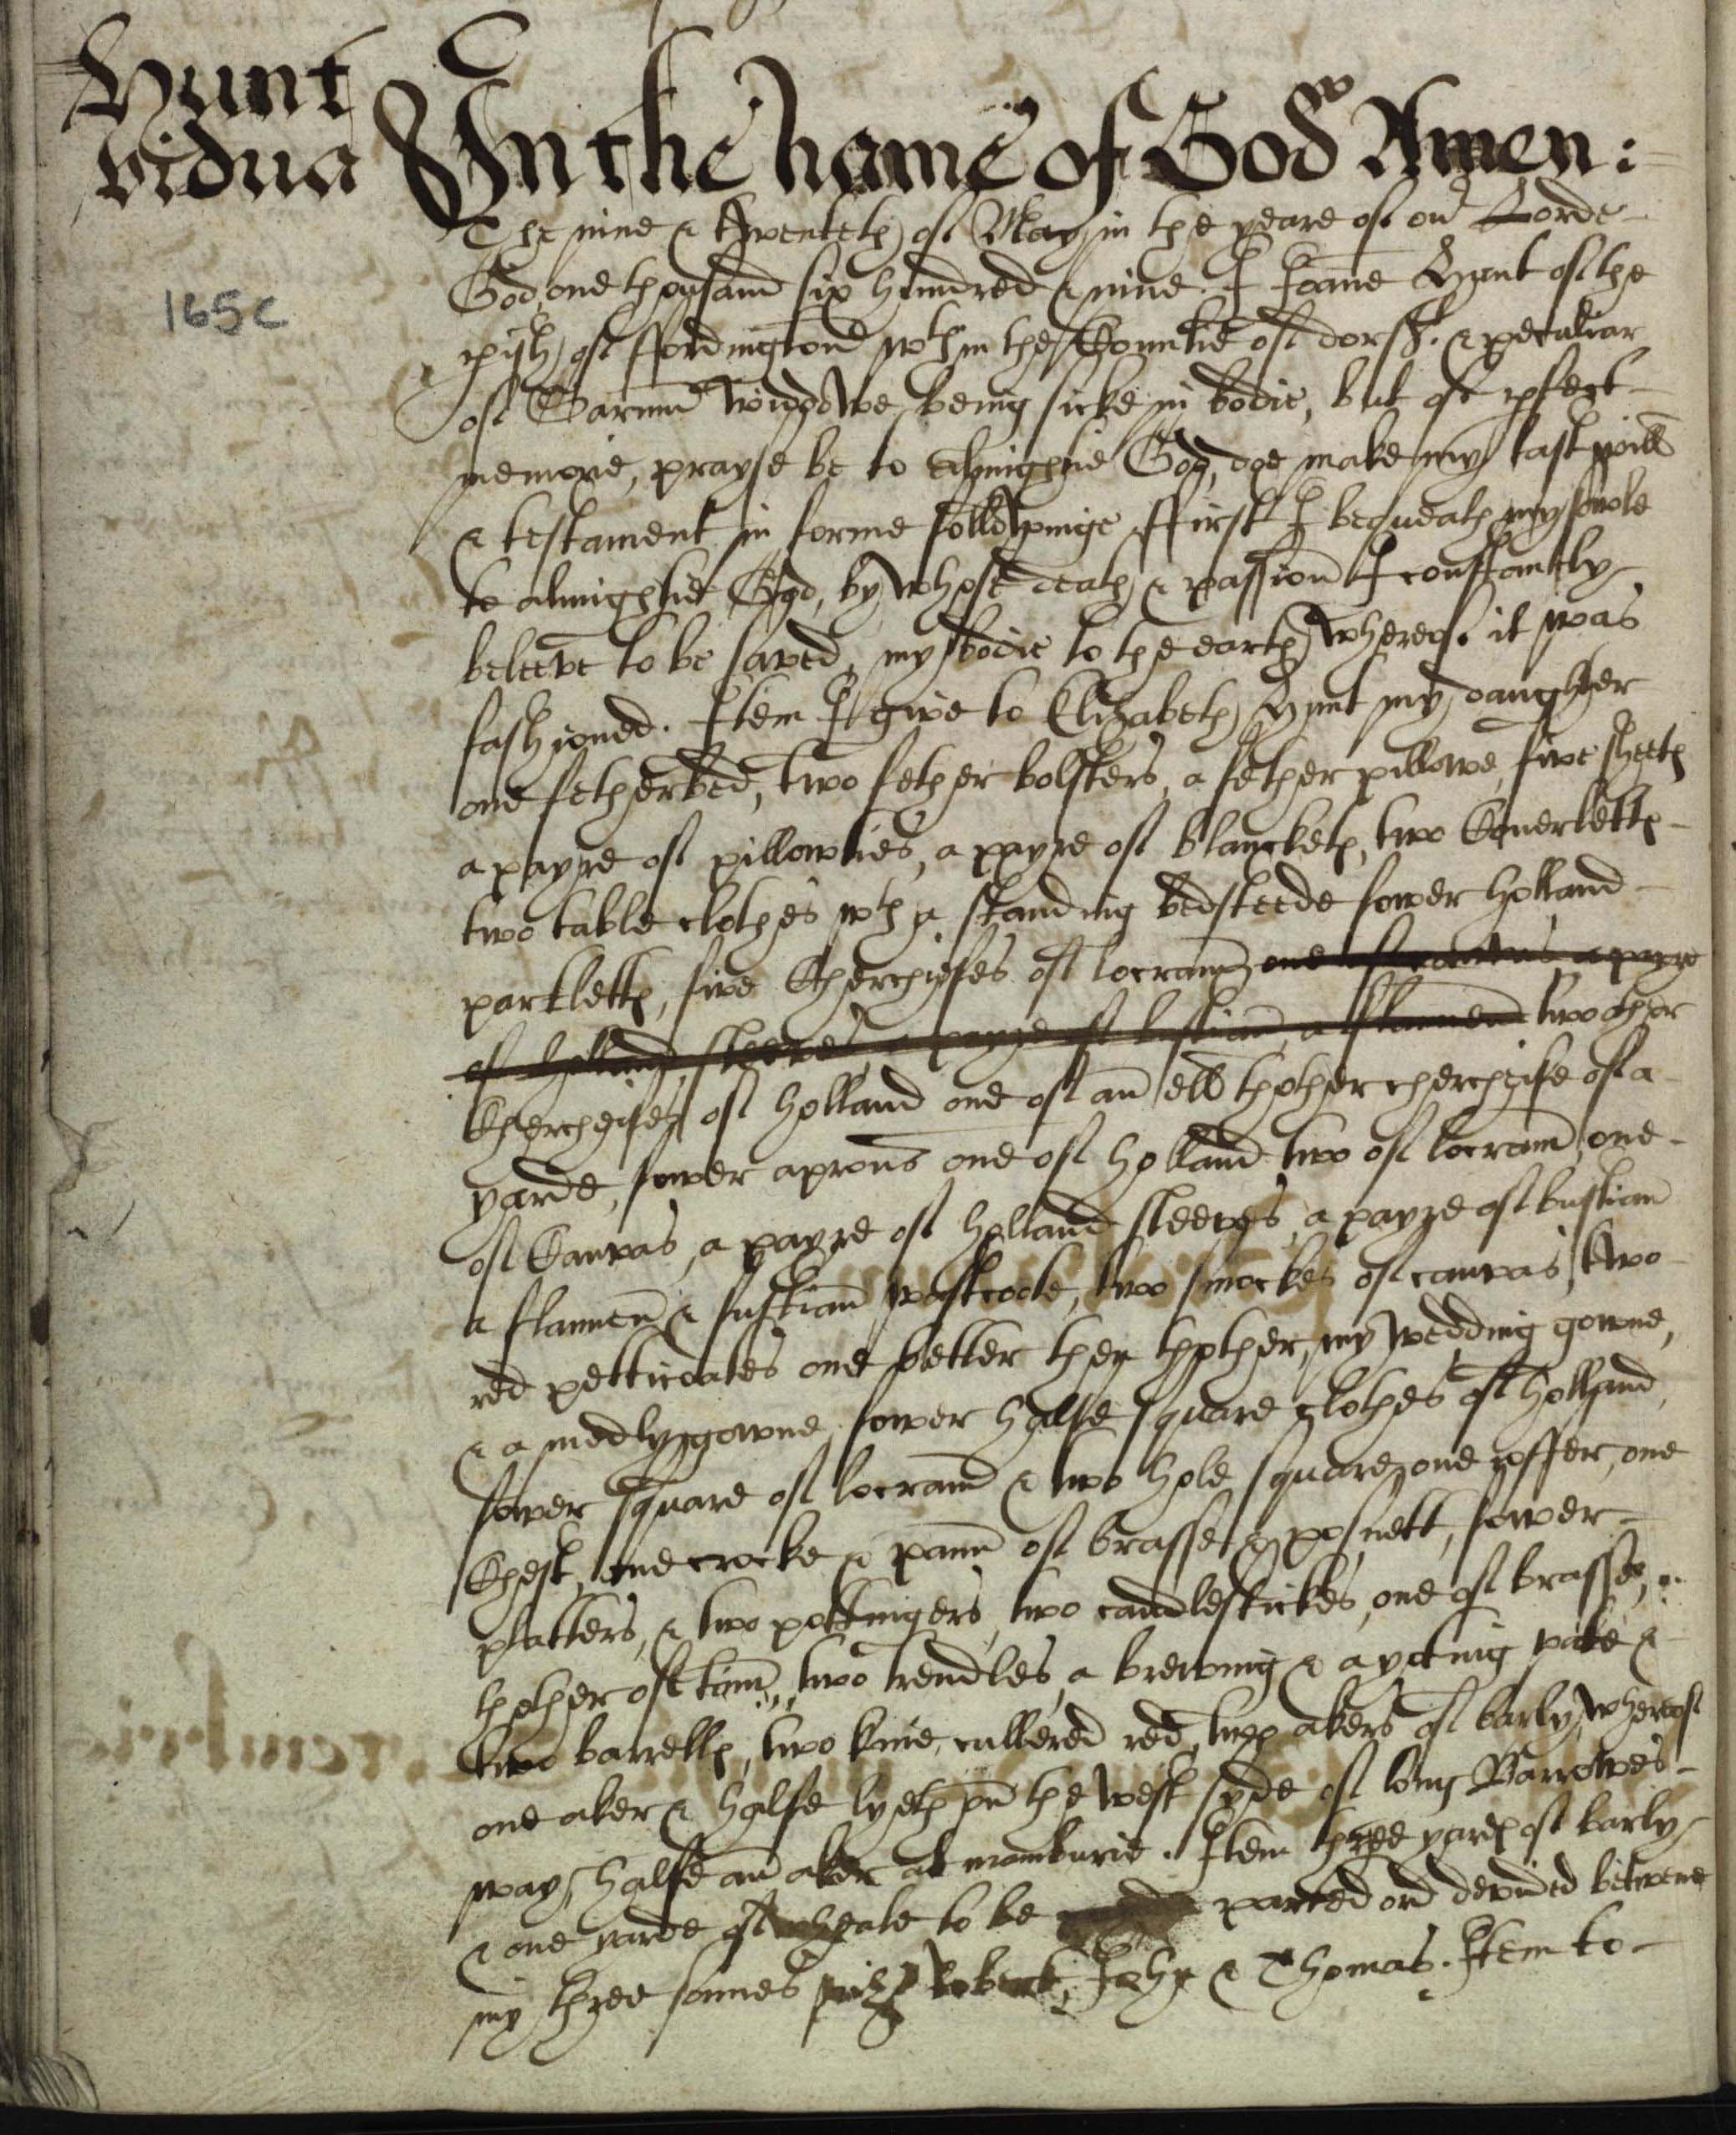 Hunt
vidua
In the name of God Amen:
165c
The nine & twenteth of May in the yeare of our Lorde
God one thousand six hundred & nine. I Joane Hunt of the
pish of ffordington wthin the Countie of dorst. & peculiar
of Sarum widdowe being sicke in bodie, but of pfect
memorie, prayse be to almightie God, doe make my last will
& testament in forme followinge ffirst I bequeath my sowle
to almightie God, by whose death & passion I constantly
beleeve to be saved, my bodie to the earth whereof it was
fashioned. Item I give to Elizabeth Hunt my daughter
one fetherbed, two fether bolsters, a fether pillowe, five sheets
a payre of pillowties, a payre of blanckets, two Coverletts
two table clothes wth a standing bedsteede fower holland
partletts, five Cherchifes of locram one a payre
of holland sleeves, a payre of bustian, a flannen two other
Chercheifes of holland one of an ell thother chercheife of a
yarde, fower aprons one of holland two of locram, one
of Canvas, a payre of holland sleeves, a payre of bustian
a flannen & fustian wastcoote, two smockes of canvas, two
red petticoates one better then thother, my wedding gowne,
& a medly gowne, fower halfe square clothes of holland,
fower square of locram & two hole square, one coffer, one
Chest, one crocke & pann of brasse & posnett, fower
platters, & two pottingers, two candlestickes, one of brasse,
thother of tinn, two trendles, a brewing & a yoting vate &
two barrells, two kine, cullered red, two akers of barly, whereof
one aker & halfe lyeth on the west syde of long Barrowes
way, halfe an aker at mamburie. Item three yards of barly
& one yarde of wheate to be parted and devided betweene
my three sonnes Robert, John & Thomas. Item to